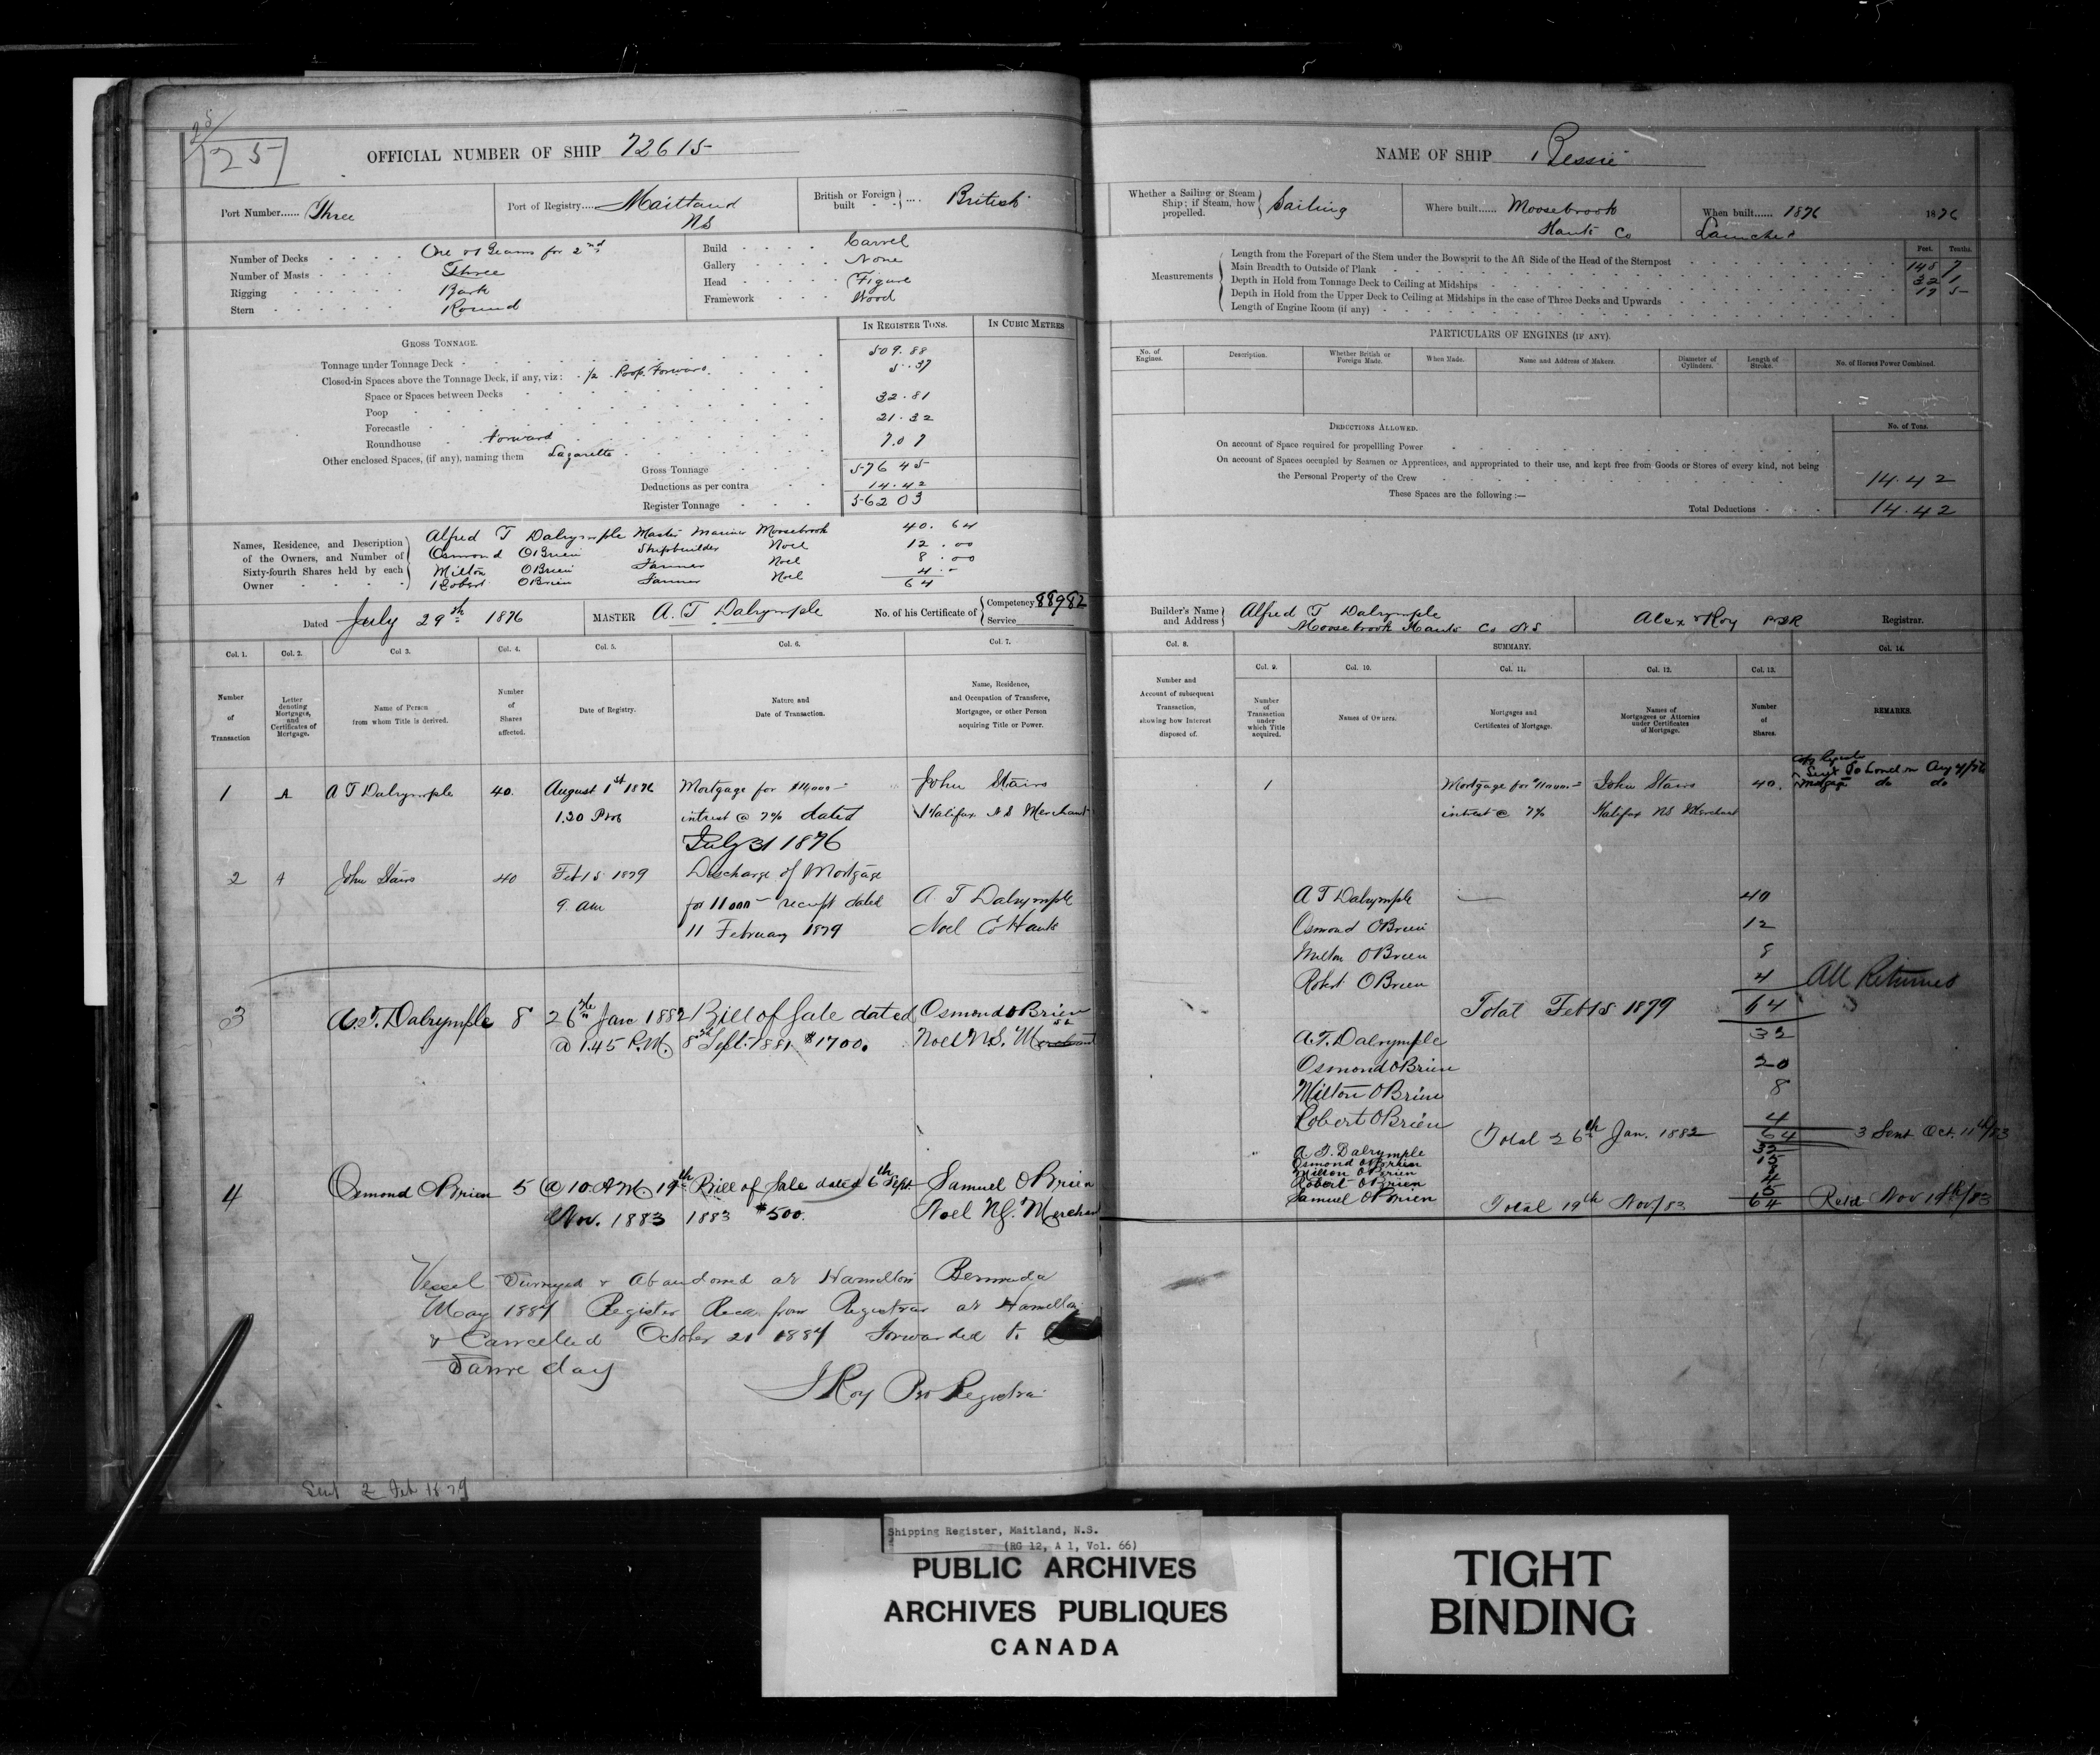 25/
25
OFFICIAL NUMBER OF SHIP 72615
Port Number...... Three
Port of Registry..... Maitland NS
British or Foreign built .... British
Number of Decks One & Beams for 2nd
Number of Masts Three
Rigging Bark
Stern Round
Build Carvel
Gallery None
Head Figure
Framework Wood
GROSS TONNAGE.
IN REGISTER TONS.
IN CUBIC METRES
Tonnage under Tonnage Deck 509.88
Closed-in Spaces above the Tonnage Deck, if any, viz: 1/2 Poop Forward. 5.37
Space or Spaces between Decks
Poop 32.81
Forecastle 21.32
Roundhouse Forward
Other enclosed Spaces, (if any), naming them Lazarette 7.07
Gross Tonnage 576 45
Deductions as per contra 14.42
Register Tonnage 562 03
Names, Residence, and Description of the Owners, and Number of Sixty-fourth Shares held by each Owner
Alfred T Dalrymple Master Mariner Moosebrook 40. 64
Osmond OBrien Shipbuilder Noel 12.00
Milton OBrien Farmer Noel 8.00
Robert OBrien Farmer Noel 4.-
64
Dated July 29th 1876
MASTER A. T Dalrymple
No. of his Certificate of Competency 88982
Service
Col. 1.
Col. 2.
Col 3.
Col. 4.
Col. 5.
Col. 6.
Col. 7.
Number of Transaction
Letter denoting Mortgages, and Certificates of Mortgage.
Name of Person from whom Title is derived.
Number of Shares affected.
Date of Registry.
Nature and Date of Transaction.
Name, Residence, and Occupation of Transferee, Mortgagee, or other Person acquiring Title or Power.
1 A A T Dalrymple 40. August 1st 1876 Mortgage for $11,000- John Stairs
1.30 PM intrest @ 7% dated Halifax NS Merchant
July 31 1876
2 A John Stairs 40 Feb 15 1879 Discharge of Mortgage
9. am for 11000- receipt dated A. T Dalrymple
11 February 1879 Noel Co Hants
3 A. T. Dalrymple 8 26th Jan 1882 Bill of Sale dated Osmond OBrien
@ 1.45 P.M. 8th Sept. 1881 $1700. Noel N.S.
4 Osmond OBrien 5 @ 10 AM 19th Bill of Sale dated 6th Sept. Samuel OBrien
Nov. 1883 1883 $500. Noel NS. Merchant
Vessel Surveyed & Abandoned at Hamilton Bermuda
May 1884 Register Recd from Registrar at Hamilton
& Cancelled October 21 1884 Forwarded to
Same day
J Roy Pro Registrar
Sent 2 Feb 1879
NAME OF SHIP Bessie
Whether a Sailing or Steam Ship; if Steam, how propelled. Sailing
Where built...... Moosebrook Hants Co
When built...... 1876
Launched
1876
Measurements
Feet. Tenths.
Length from the Forepart of the Stem under the Bowsprit to the Aft Side of the Head of the Sternpost 145 7
Main Breadth to Outside of Plank 32 1
Depth in Hold from Tonnage Deck to Ceiling at Midships 17 5
Depth in Hold from the Upper Deck to Ceiling at Midships in the case of Three Decks and Upwards
Length of Engine Room (if any)
PARTICULARS OF ENGINES (IF ANY).
No. of Engines.
Description.
Whether British or Foreign Made.
When Made.
Name and Address of Makers.
Diameter of Cylinders.
Length of Stroke.
No. of Horses Power Combined.
DEDUCTIONS ALLOWED.
No. of Tons.
On account of Space required for propellling Power
On account of Spaces occupied by Seamen or Apprentices, and appropriated to their use, and kept free from Goods or Stores of every kind, not being
the Personal Property of the Crew 14.42
These Spaces are the following :—
Total Deductions 14.42
Builder's Name and Address Alfred T Dalrymple
Moosebrook Hants Co NS
Alex Roy Registrar.
Col. 8.
SUMMARY.
Col. 14.
Col. 9.
Col. 10.
Col. 11.
Col. 12.
Col. 13.
Number and Account of subsequent Transaction, showing how Interest disposed of.
Number of Transaction under which Title acquired.
Names of Owners.
Mortgages and Certificates of Mortgage.
Names of Mortgagees or Attornies under Certificates of Mortgage.
Number of Shares.
REMARKS.
1 Mortgage for $11000- John Stairs 40. Mortgage do do
intrest @ 7% Halifax NS Merchant
A T Dalrymple 40
Osmond OBrien 12
Milton OBrien 8
Robert OBrien 4 All Returned
Total Feb 15 1879 64
A. T. Dalrymple 32
Osmond OBrien 20
Milton OBrien 8
Robert OBrien 4
Total 26th Jan. 1882 64 3 Sent Oct. 11th/83
A T. Dalrymple 32
Osmond OBrien 15
Milton OBrien 8
Robert OBrien 4
Samuel OBrien 5
Total 19th Nov/83 64
Shipping Register, Maitland, N.S.
(RG 12, A 1, Vol. 66)
PUBLIC ARCHIVES
ARCHIVES PUBLIQUES
CANADA
TIGHT
BINDING